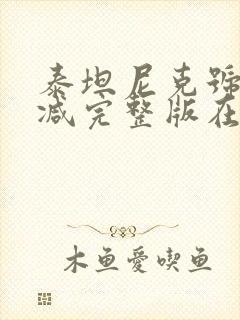 泰坦尼克號
减完整版在
木鱼愛喫鱼